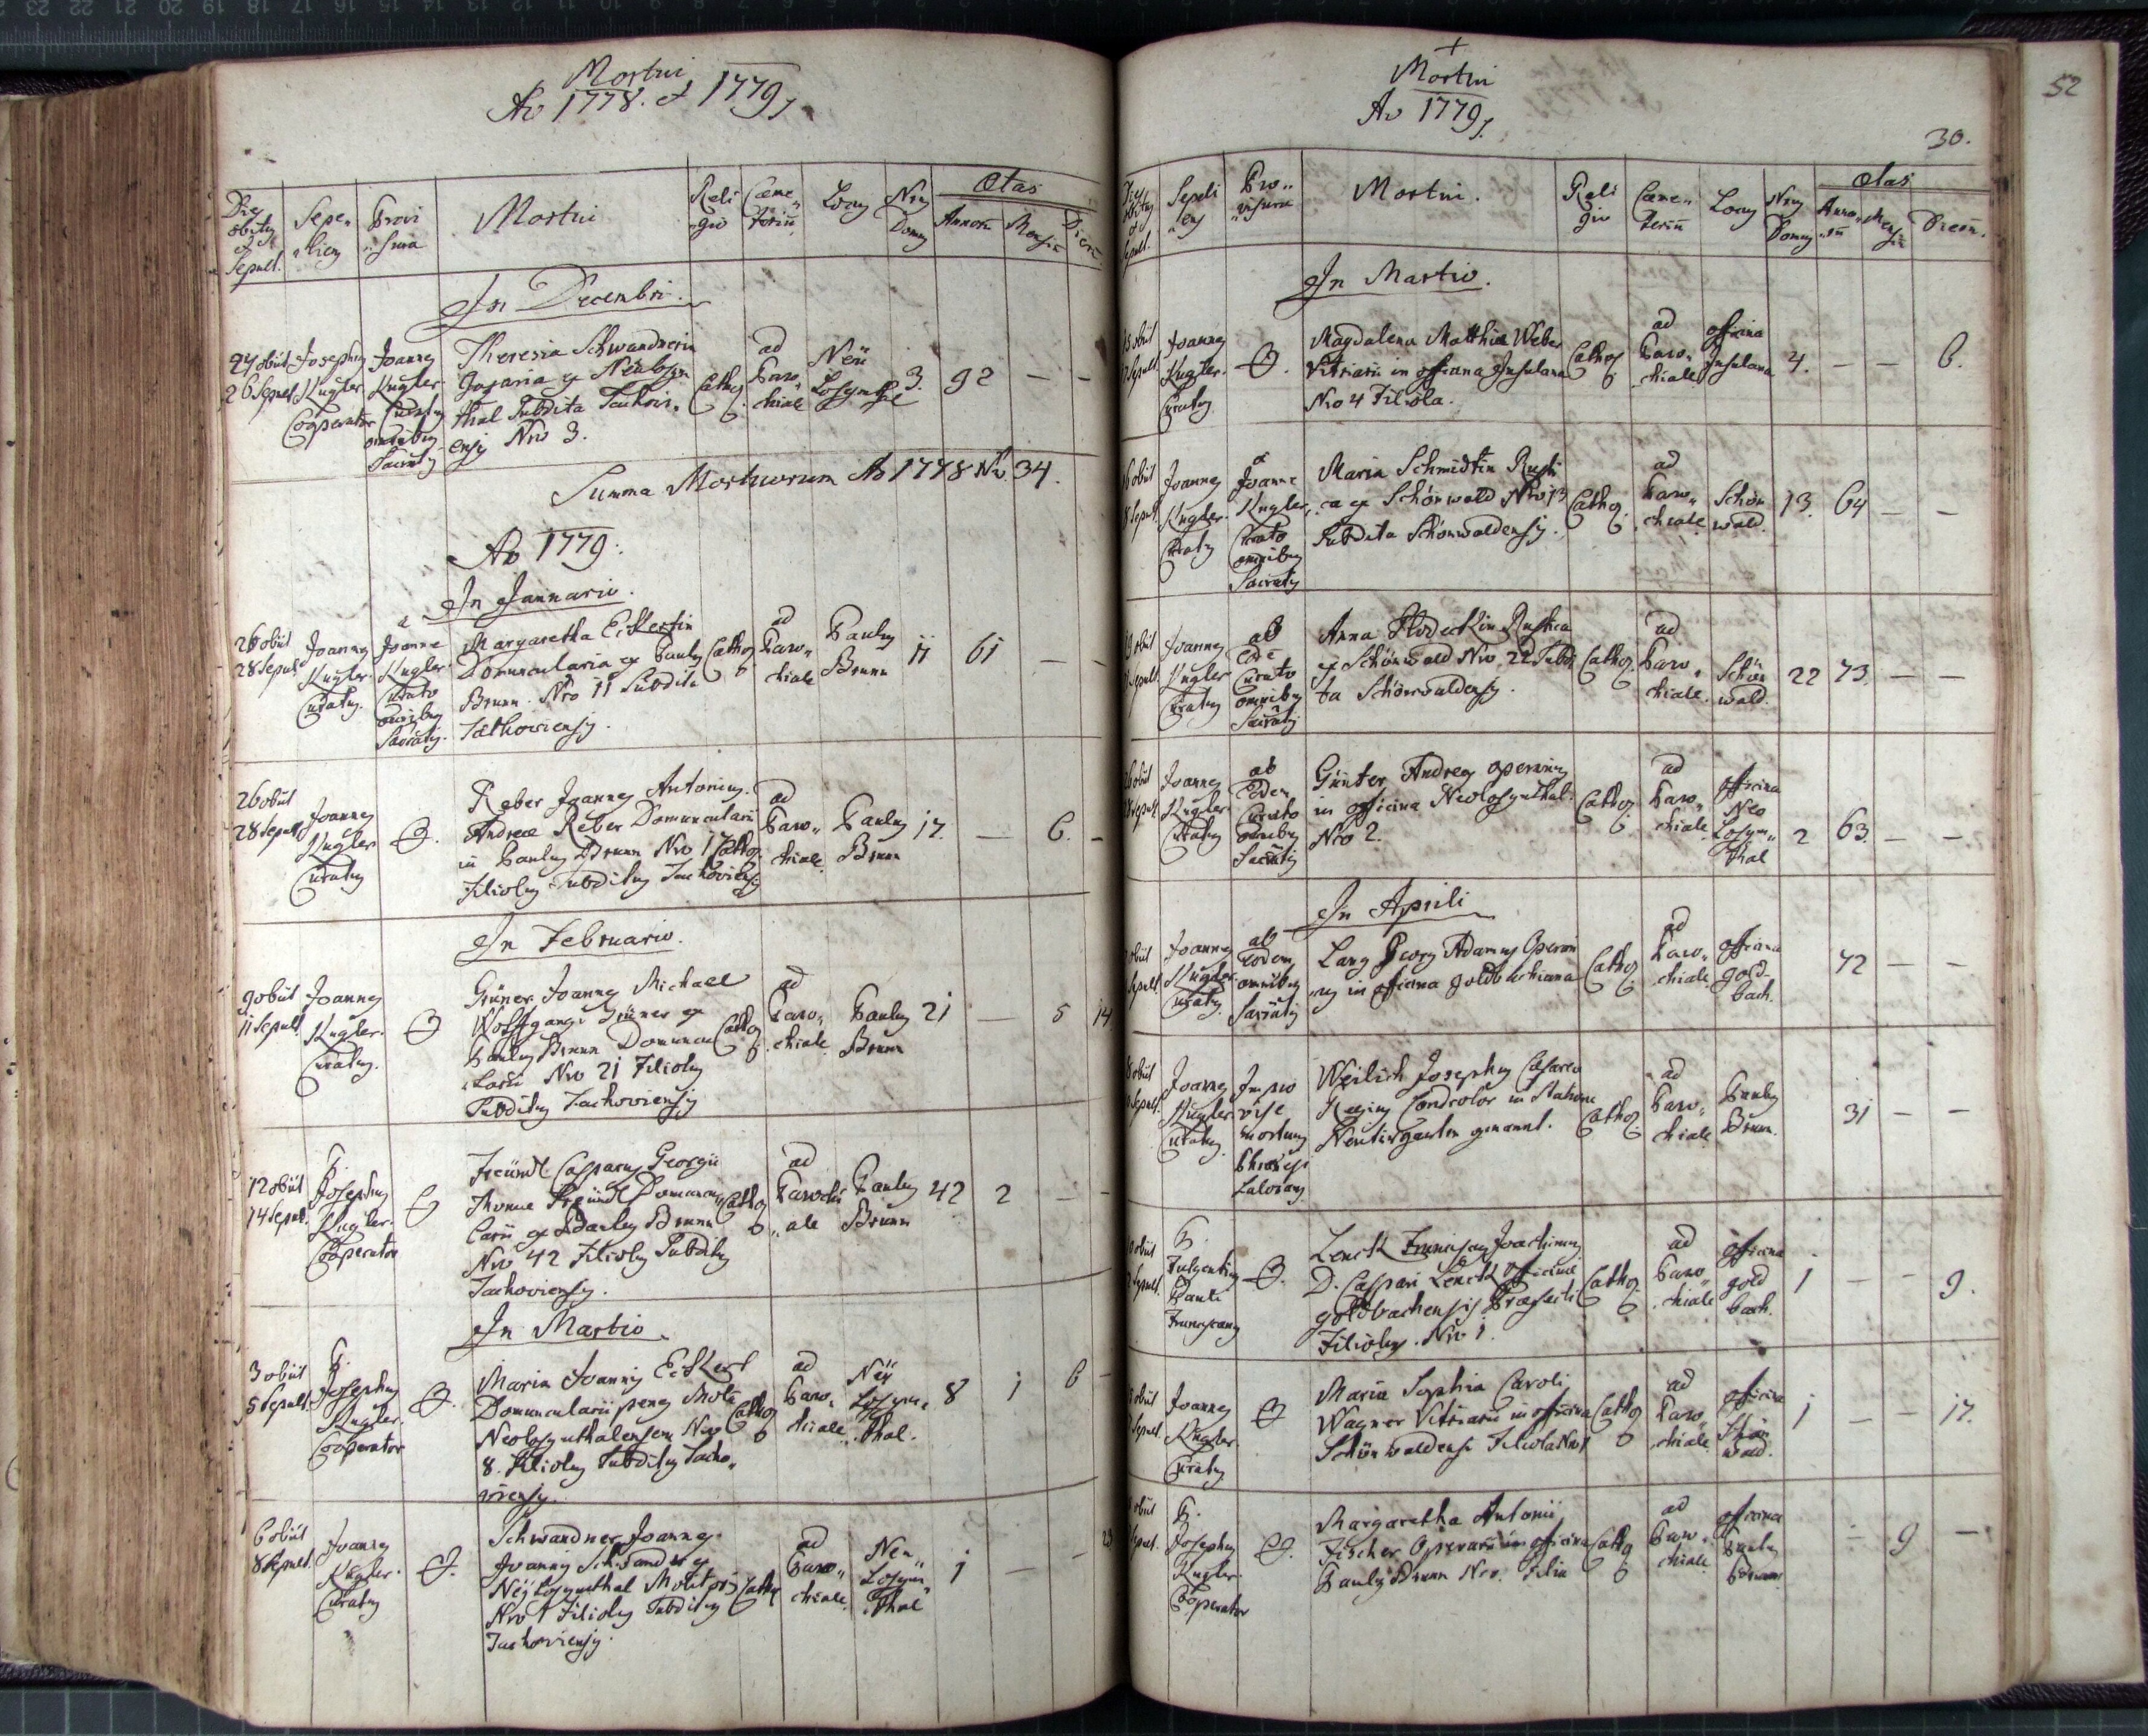 Mortui
Ao 1778. et 1779
Dies obitus et Sepult.
Sepeliens
Provisura
Mortui
Religio
Cæmeteriũ
Locus
Nrus Domus
Ætas
Annorũ
Mensiũ
Dierũ
In Decembri.
24 obiit
26 Sepult.
Josephus
Kugler
Cooperator
Joannes
Kugler
Curatus
omnibus
Theresia Schwandnerin
ex Neülosyn
thal Subdita Tachoviensis Nro 3.
Cathol.
ad
Parochiale
Neü
Losynthal
3.
92
Summa Mortuorum Ao 1778 No 34.
Ao 1779.
In Januario.
26 obiit
28 Sepult
Joannes
Kugler
Curatus.
a
Joanne
Kugler
Curato
omnibus
Margaretha Eckertin
Domuncularia ex Paulus
Brunn. Nro 11 Subdita
Tachoviensis.
Cathol
ad
Parochiale
Paulus
Brunn
11
61
26 obiit
28 Sepult
Joannes
Kugler
Curatus
Reber Joannes Antonius.
Andreæ Reber Domuncularii
in Paulus Brunn Nro 17
Filiolus Subditus Tachoviensis
Cathol.
ad
Parochiale.
Paulus
Brunn
17.
6.
In Februario.
9 obiit
11 Sepult.
Joannes
Kugler.
Curatus.
Grüner Joannes Michael
Wolfgangi Grüner ex
Paulus Brunn Domuncularii Nro 21 Filiolus
Subditus Tachoviensis
Cathol.
ad
Parochiale.
Paulus
Brunn
21
5
14
12 obiit
14 Sepult.
P.
Josephus
Kugler.
Cooperator
Freündl Casparus Georgii
Thomæ Freündl Domuncularii ex Paulus Brunn
Nro 42 Filiolus Subditus
Tachoviensis.
Cathol
ad
Parochiale
Paulus
Brunn
42
2
In Martio
3 obiit
5 Sepult.
P.
Josephus
Kugler.
Cooperator
Maria Joannis Eckert
Domuncularii penes
Neolosynthalensem Nro
8. Filiolus Subditus Tachoviensis.
Cathol
ad
Parochiale
Neü
Losynthal.
8
1
6
6 obiit
8 Sepult.
Joannes
Kugler.
Curatus
Schwandner Joannes.
Joannis Schwandner ex
Neülosynthal Molitoris
Nro 1 Filiolus Subditus
Tachoviensis.
Cathol
ad
Parochiale.
Neu
Losynthal
1
23
Mortui
Ao 1779
30.
52
Dies obitus et Sepult.
Sepeliens
Provisura
Mortui.
Religio
Cæmeteriũ
Locus
Nrus Domus
Ætas
Annorũ
Mensiũ
Dierũ.
In Martio.
obiit
Sepult.
Joannes
Kugler.
Curatus
Magdalena Matthiæ Weber
Vitriarii in officina Insulana
Nro 4 Filiola.
Cathol.
ad
Parochiale
officina
Insulana
4.
6.
obiit
Sepult.
Joannes
Kugler.
Curatus
a
Joanne
Kugler
Curato
omnibus
Maria Schmidtin Rustica ex Schönwald Nro 13
Subdita Schönwaldensis.
Cathol.
ad
Parochiale.
Schönwald.
13.
64
obiit
Sepult.
Joannes
Kugler
Curatus
ab
Curato
omnibus
Anna Rustica
ex Schönwald Nro. 22 Subdita Schönwaldensis.
Cathol.
ad
Parochiale.
Schönwald.
22
73.
obiit
Sepult
Joannes
Kugler
Curatus
ab
Eodem
Curato
omnibus
Günter Andreas operarius
in officina Neolosynthal.
Nro 2.
Cathol.
ad
Parochiale.
officina
Neo
Losynthal
2
63.
In Aprili
obiit
Sepult.
Joannes
Kugler
Curatus
ab
Eodem
omnibus
Lang Georg Adamus Operarius in officina goldbachiana
Cathol.
ad
Parochiale
officina
goldbach.
72
obiit
Sepult.
Joannes
Kugler
Curatus
mortuus
Josephus
Regius in Statione
genannt.
Cathol.
ad
Parochiale
Paulus
Brunn.
31
obiit
Sepult.
P.
Fulgentius
Franciscanus
Lenck Franciscus Joachimus
D. Caspari Lenck officinæ
goldbachensis Præfecti
Filiolus. Nro 1.
Cathol.
ad
Parochiale
officina
goldbach.
1
9.
obiit
Sepult.
Joannes
Kugler
Curatus
Maria Sophia Caroli
Wagner Vitriarii in officina
Schönwaldensi Filiola Nro 1
Cathol
ad
Parochiale
officina
Schönwald.
1
17.
obiit
Sepult.
P.
Josephus
Kugler.
Cooperator
Margaretha Antonii
Fischer Operarii in officina
Paulus Brunn Nro. Filia
Cathol
ad
Parochiale.
officina
Paulus
Brunn.
9